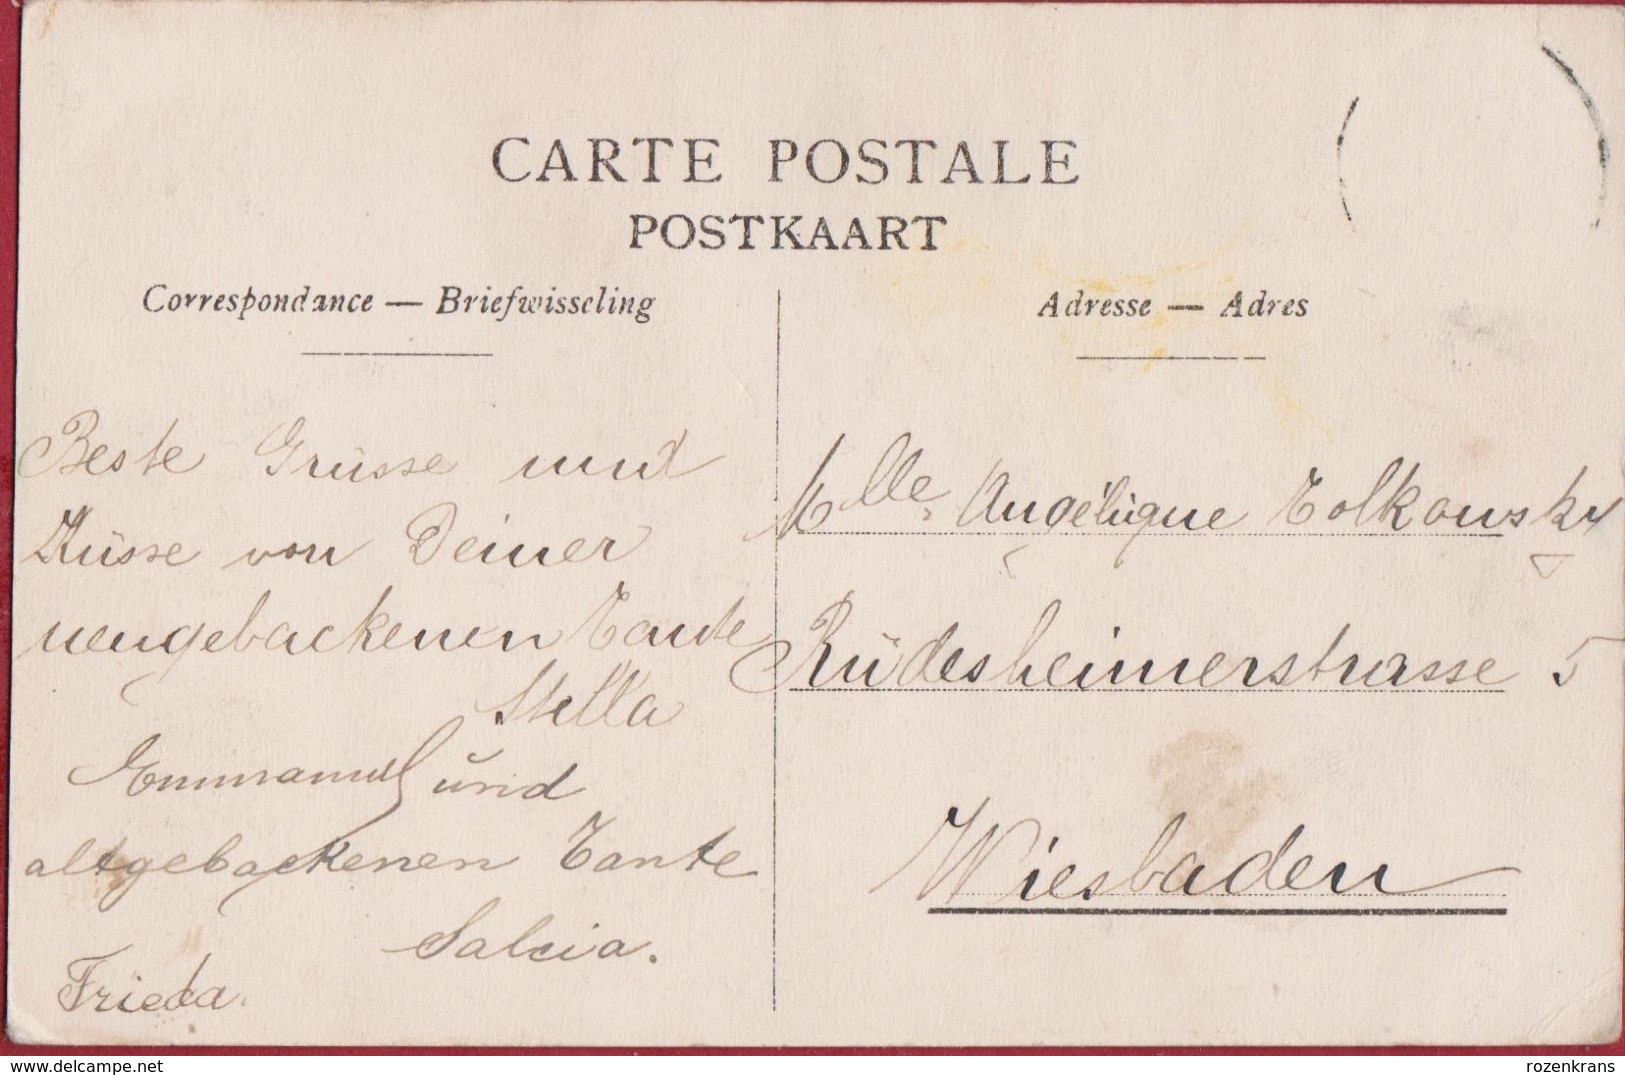 CARTE POSTALE
POSTKAART
Correspondance — Briefwisseling
Adresse — Adres
Beste Grüsse und
Küsse von Deiner
neugebackenen Tante
Stella
Emmanuel und
altgebackenen Tante
Salcia.
Frieda.
Mlle Angélique Tolkowsky
Rüdesheimerstrasse 5
Wiesbaden
delcampe.net
rozenkrans